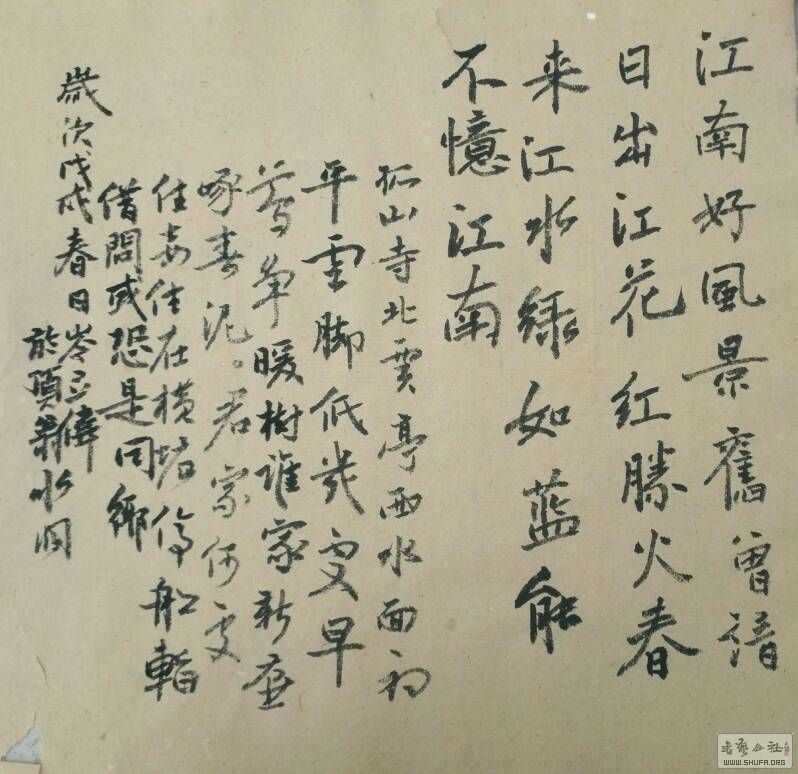 江南好風景舊曾諳
日出江花红勝火春
来江水緑如藍能
不憶江南
孤山寺北賈亭西水面初
平雲脚低幾處早
莺争暖樹谁家新燕
啄春泥。君家何處
住妾住在横塘停船暫
借問或恐是同鄉
歲次戊戌春日岑立偉
於頂水
书艺公社
WWW.SHUFA.ORG